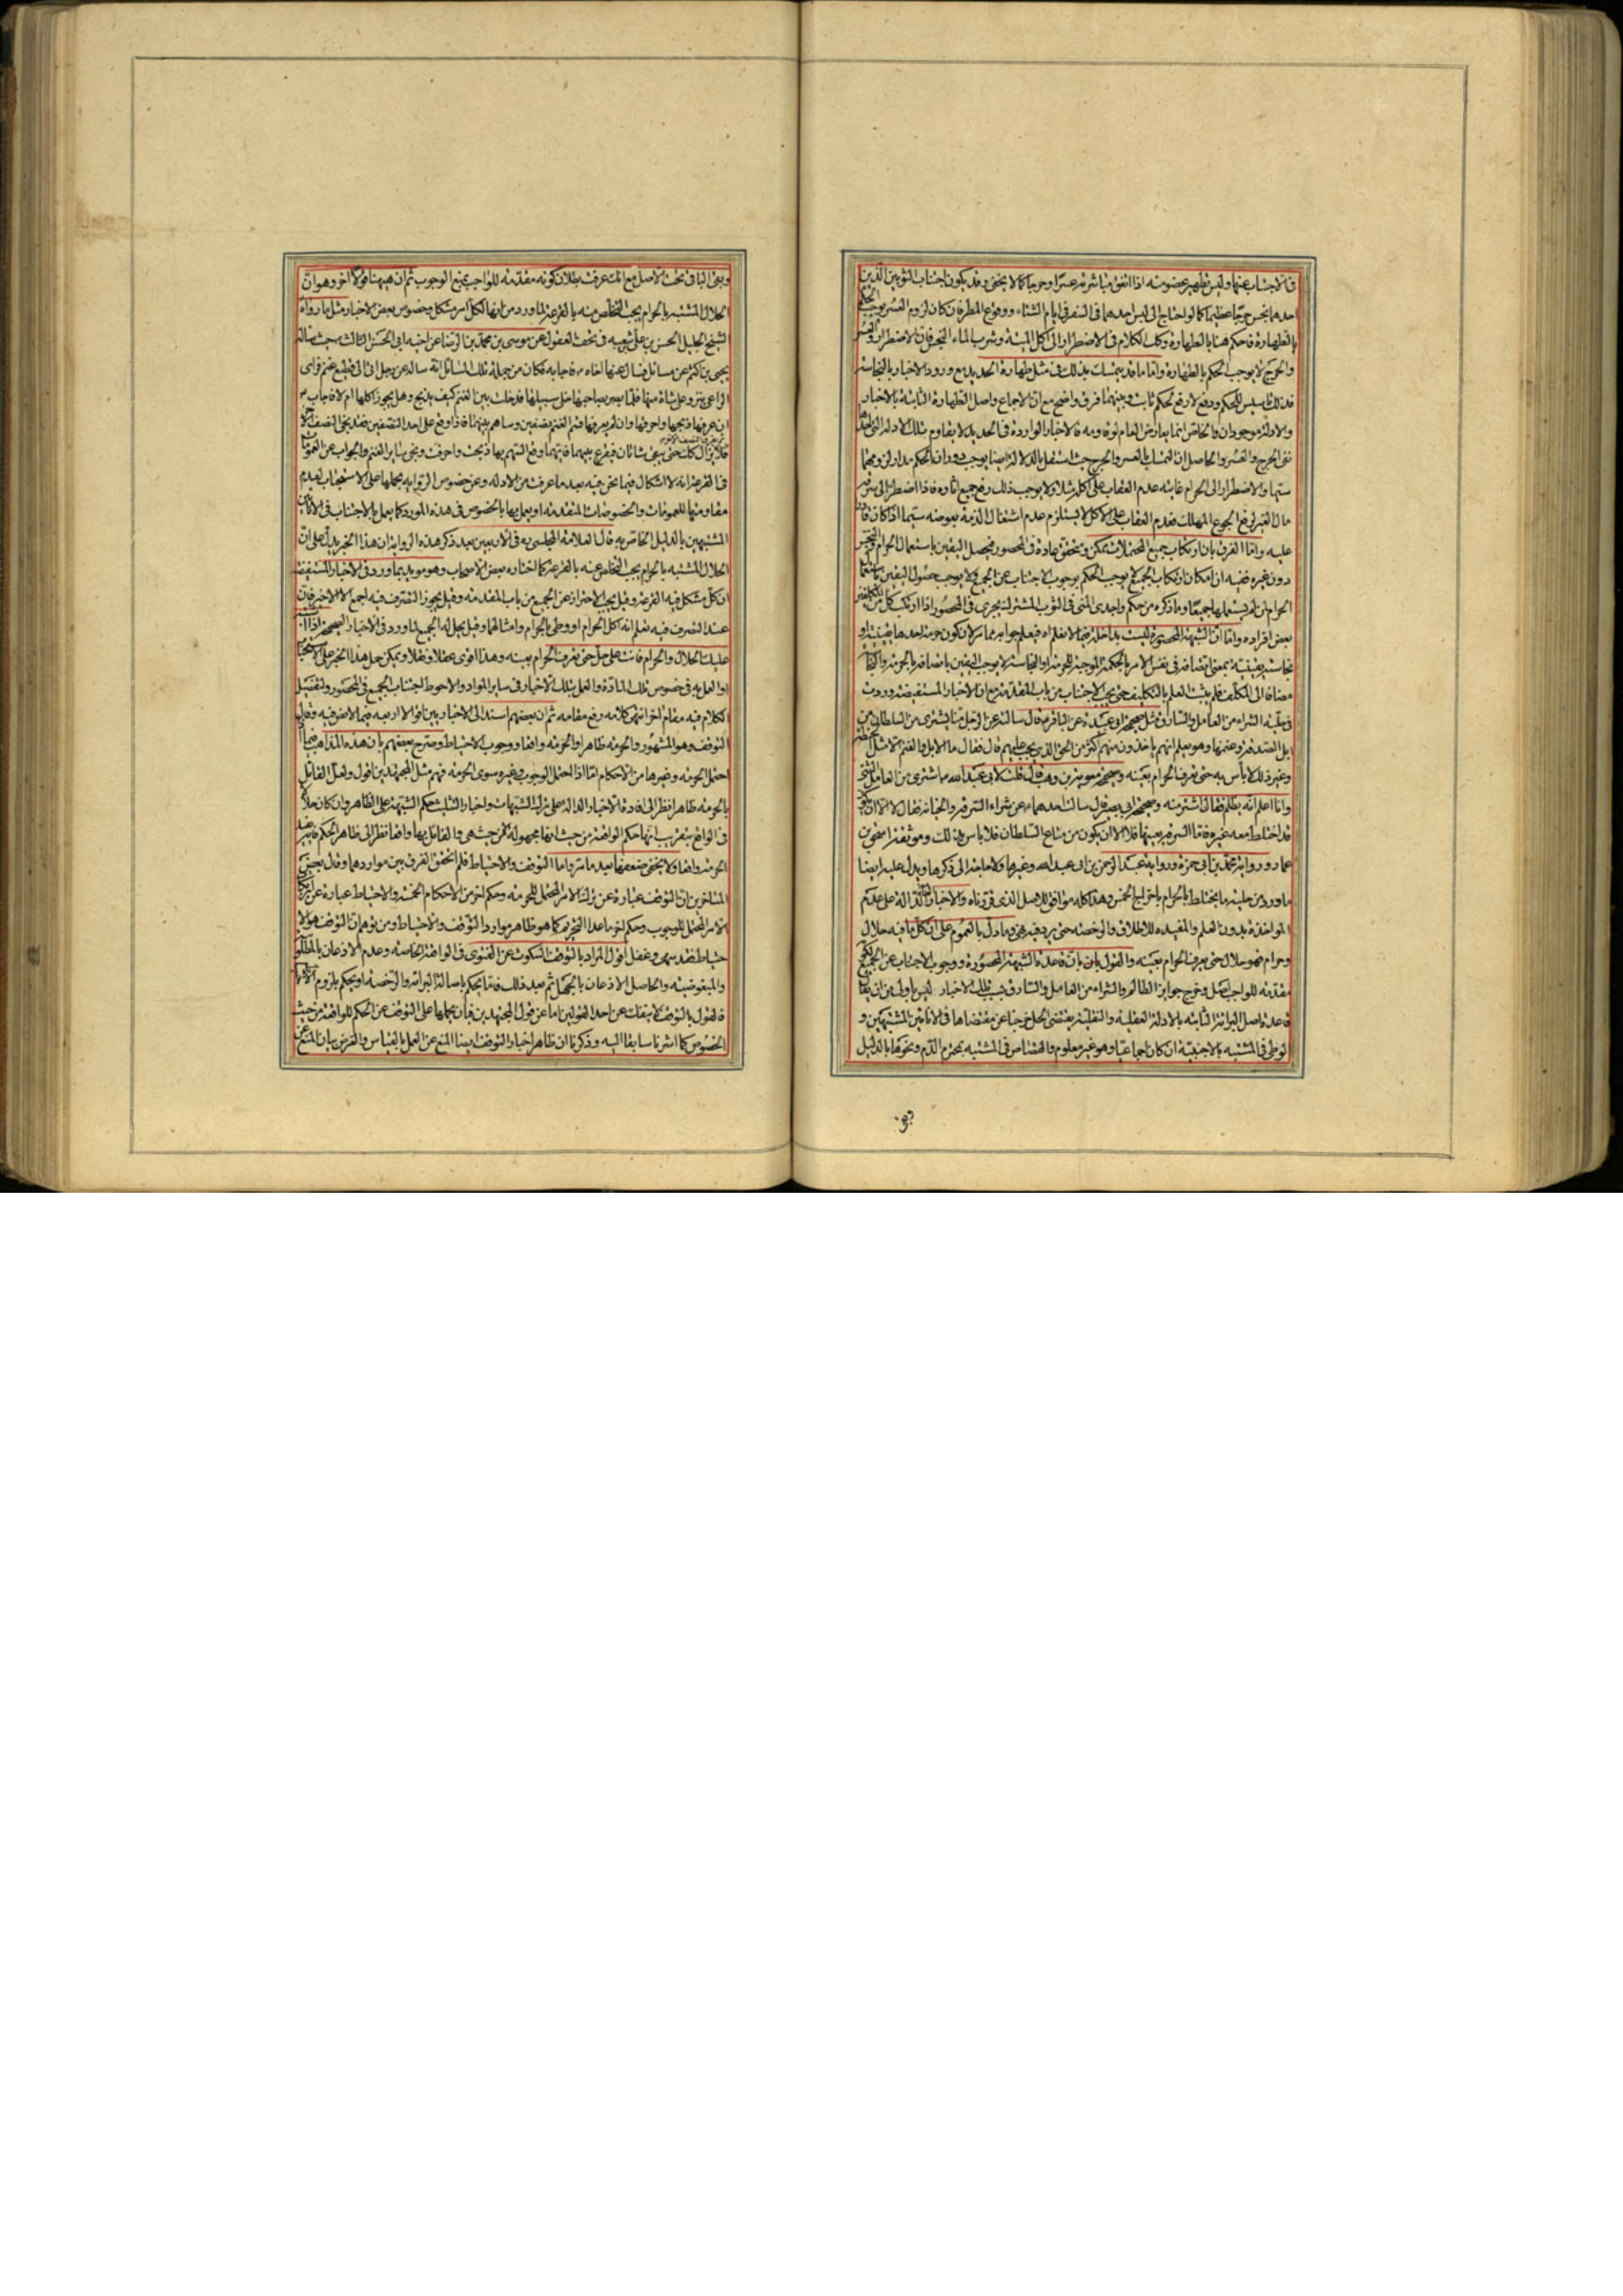 احدهما بنجس حرجا عظيما كما لو احتاج الى لبس احدهما فى السفر فى ايام الشتاء ووقوع المطر فان كان لزوم العسر يوجب الحكم
بالطهارة فاحكم هنا بالطهارة وكك الكلام فى الاضطرار الى اكل الميتة وشرب الماء النجس فان الاضطرار والعسر
والحرج لا يوجب الحكم بالطهارة واما ما قد يتمسك بذلك فى مثل طهارة الحديد مع ورود الاخبار بالنجاسة
فذلك تاسيس للحكم ودفع لا رفع لحكم ثابت وبينهما فرق واضح مع ان الاجماع واصل الطهارة الثابتة بالاخبار
والادلة موجودان والخاص انما يعارض العام لو قاومه فالاخبار الواردة فى الحديد لا يقاوم تلك الادلة
نفى الحرج والعسر والحاصل ان التمسك بالعسر والحرج حيث يستقل بالدلالة ايضا يوجب دوران الحكم مدار لزومهما
سيما والاضطرار الى الحرام غايته عدم العقاب على اكله مثلا ولا يوجب ذلك رفع جميع اثاره فاذا اضطر الى
مال الغير لرفع الجوع المهلك فعدم العقاب على الاكل لا يستلزم عدم اشتغال الذمة بعوضه سيما اذا كان
عليه واما الفرق بان ارتكاب جميع المحتملات ممكن ويتحقق عادة فى المحصور فيحصل اليقين باستعمال الحرام
دون غيره ففيه ان امكان ارتكاب الجميع لا يوجب الحكم بوجوب الاجتناب عن الجميع ولا يوجب حصول اليقين
الحرام ان لم يستعملها جميعا وما ذكره من حكم واجدى المنى فى الثوب المشترك يجرى فى المحصور اذا ارتكب كل من
بعض افراده واما ان الشبهة المحصورة ليست بداخلة فيما لا يعلم
نجاسته يقينية بمعنى اتصافه فى نفس الامر بالحكمة الموجبة للحرمة او النجاسة لا يوجب اليقين باتصافه بالحرمة
مضافا الى المكلف فلم يثبت العلم بالتكليف حتى يجب الاجتناب من باب المقدمة مع ان الاخبار المستفيضة وردت
فى حلية الشراء من العامل والسارق مثل صحيحة ابى عبيدة عن الباقر قال سالته عن الرجل منا يشترى من السلطان من
ابل الصدقة وغنمها وهو يعلم انهم ياخذون منهم اكثر من الحق الذى يجب عليهم قال فقال ما الابل والغنم الا مثل
وغير ذلك لا بأس به حتى تعرف الحرام بعينه وصحيحة معوية بن وهب قال قلت لابى عبد الله اشترى من العامل
وانا اعلم انه يظلم فقال اشتر منه وصحيحة ابى بصير قال سالت احدهما عن شراء السرقة والخيانة فقال لا الا ان
قد اختلط معه غيره فاما السرقة بعينها فلا الا ان يكون من متاع السلطان فلا باس بذلك وموثقة اسحق بن
عمار ورواية محمد بن ابى حمزة ورواية عبد الرحمن بن ابى عبد الله وغيرها ولا حاجة الى ذكرها ويدل عليه ايضا
ما ورد من حلية ما يختلط بالحرام باخراج الخمس وهذا كله موافق للاصل الذى قررناه والاخبار الدالة على عدم
المؤاخذة بدون العلم والمقيدة للاطلاق والرخصة حتى يرد فيه نهى وما دل بالعموم على ان كل ما فيه حلال
وحرام فهو حلال حتى يعرف الحرام بعينه والقول بان قاعدة الشبهة المحصورة ووجوب الاجتناب عن الجميع
مقدمة للواجب اصل وخرج جوائز الظالم والشراء من العامل والسارق بسبب تلك الاخبار ليس باولى من ان
قاعدة اصل البرائة الثابتة بالادلة العقلية والنقلية يقتضى الحل خرجنا عن مقتضاها فى الانائين المشتبهين و
الوطى فى المشتبه بالاجنبية ان كان اجماعيا وهو غير معلوم والقصاص فى المشتبه بمحترم الدم ونحوها بالدليل
وبقى الباقى تحت الاصل مع انك عرفت بطلان كونه مقدمة للواجب بمنع الوجوب ثم ان ههنا قولا اخر وهو ان
الحلال المشتبه بالحرام يجب التخلص منه بالقرعة لما ورد من انها لكل امر مشكل وخصوص بعض الاخبار مثل ما رواه
الشيخ الجليل الحسن بن على شعبه فى تحف العقول عن موسى بن محمد بن الرضا عن اخيه ابى الحسن الثالث حيث ساله
يحيى بن اكثم عن مسائل فسال عنها اخاه فاجابه فكان من جملة تلك المسائل انه ساله عن رجل اتى الى قطيع غنم فراى
الراعى ينزو على شاة منها فلما بصر بصاحبها خلى سبيلها فدخلت بين الغنم كيف يذبح وهل يجوز اكلها ام لا فاجاب
ان عرفها ذبحها واحرقها وان لم يعرفها قسم الغنم نصفين وساهم بينهما فاذا وقع على احد النصفين فقد نجى النصف الاخر
فلا يزال كك حتى يبقى شاتان فيقرع بينهما فايتهما وقع السهم بها ذبحت واحرقت ونجى سائر الغنم والجواب عن
فى القرعة انه لا اشكال فيما نحن فيه بعد ما عرفت من الادلة وعن خصوص الرواية بحملها على الاستحباب لعدم
مقاومتها للعمومات والخصوصات المتقدمة او يعمل بها بالخصوص فى هذه المورد كما يعمل بالاجتناب فى
المشتبهين بالدليل الخاص به قال العلامة المجلسى ره فى الاربعين بعد ذكر هذه الرواية ان هذا الخبر يدل على ان
الحلال المشتبه بالحرام يجب التخلص عنه بالقرعة كما اختاره بعض الاصحاب وهو مويد بما ورد فى الاخبار المستفيضة
ان كل مشكل فيه القرعة وقيل يجب الاحتراز عن الجميع من باب المقدمة وقيل يجوز التصرف فيه اجمع الا الاخير فان
عند التصرف فيه يعلم انه اكل الحرام او وطى بالحرام وامثالها وقيل يحل له الجميع لما ورد فى الاخبار الصحيحة اذا
عليك الحلال والحرام فانت على حل حتى تعرف الحرام بعينه وهذا اقوى عقلا ونقلا ويمكن حمل هذا الخبر على
او العمل به فى خصوص تلك المادة والعمل بتلك الاخبار فى سائر المواد والاحوط اجتناب الجميع فى المحصور ولتفصيل
الكلام فيه مقام اخر انتهى كلامه رفع مقامه ثم ان بعضهم اسند الى الاخباريين اقوالا اربعة فيما لا نص فيه
التوقف وهو المشهور والحرمة ظاهرا والحرمة واقعا ووجوب الاحتياط وصرح بعضهم بان هذه المذاهب
احتمل الحرمة وغيرها من الاحكام اما اذا احتمل الوجوب وغيره سوى الحرمة فهم مثل المجتهدين اقول ولعل القائل
بالحرمة ظاهرا نظر الى افادة الاخبار الدالة على ترك الشبهات واخبار التثليث حكم الشبهة على الظاهر وان كان حلالا
فى الواقع بتقريب انها حكم الواقعة من حيث انها مجهولة لا من حيث هى والقائل بها واقعا نظر الى ظاهر الحكم
الحرمة واقعا ولا يخفى ضعفهما بعد ما مر واما التوقف والاحتياط فلم اتحقق الفرق بين مواردهما وقال بعض
المتاخرين ان التوقف عبارة عن ترك الامر المحتمل للحرمة وحكم اخر من الاحكام الخمسة والاحتياط عبارة عن
الامر المحتمل للوجوب وحكم اخر ما عدا التحريم كما هو ظاهر موارد التوقف والاحتياط ومن توهم ان التوقف هو
الاحتياط فقد سهى وغفل اقول المراد بالتوقف السكوت عن الفتوى فى الواقعة الخاصة وعدم الاذعان
والمبغوضية والحاصل الاذعان بالجهل ثم بعد ذلك فاما يحكم باصالة البرائة والرخصة او يحكم بلزوم
فالقول بالتوقف لا ينفك عن احد القولين اما عن قول المجتهدين فبان يحملها على التوقف عن الحكم للواقعة من حيث
الخصوص كما اشرنا سابقا اليه وذكرنا ان ظاهر اخبار التوقف ايضا المنع عن العمل بالقياس والغرض بيان المنع عن